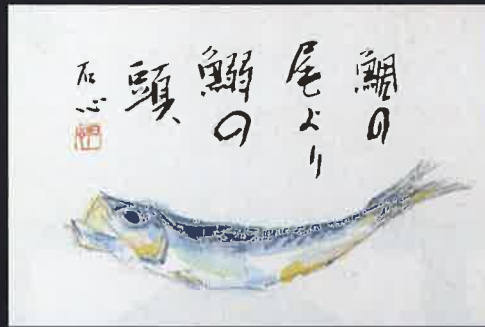 鯛の
尾より
鰯の
頭
石心